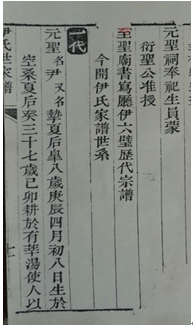 元聖祠奉祀生員蒙
衍聖公准授
至聖廟書寫廳伊六璧歷代宗譜
今開伊氏家譜世系
一代
元聖名尹又名摯夏后皋八歲庚辰四月初八日生於
空桑夏后癸三十七歲己卯耕於有莘湯使人以
伊氏世家譜